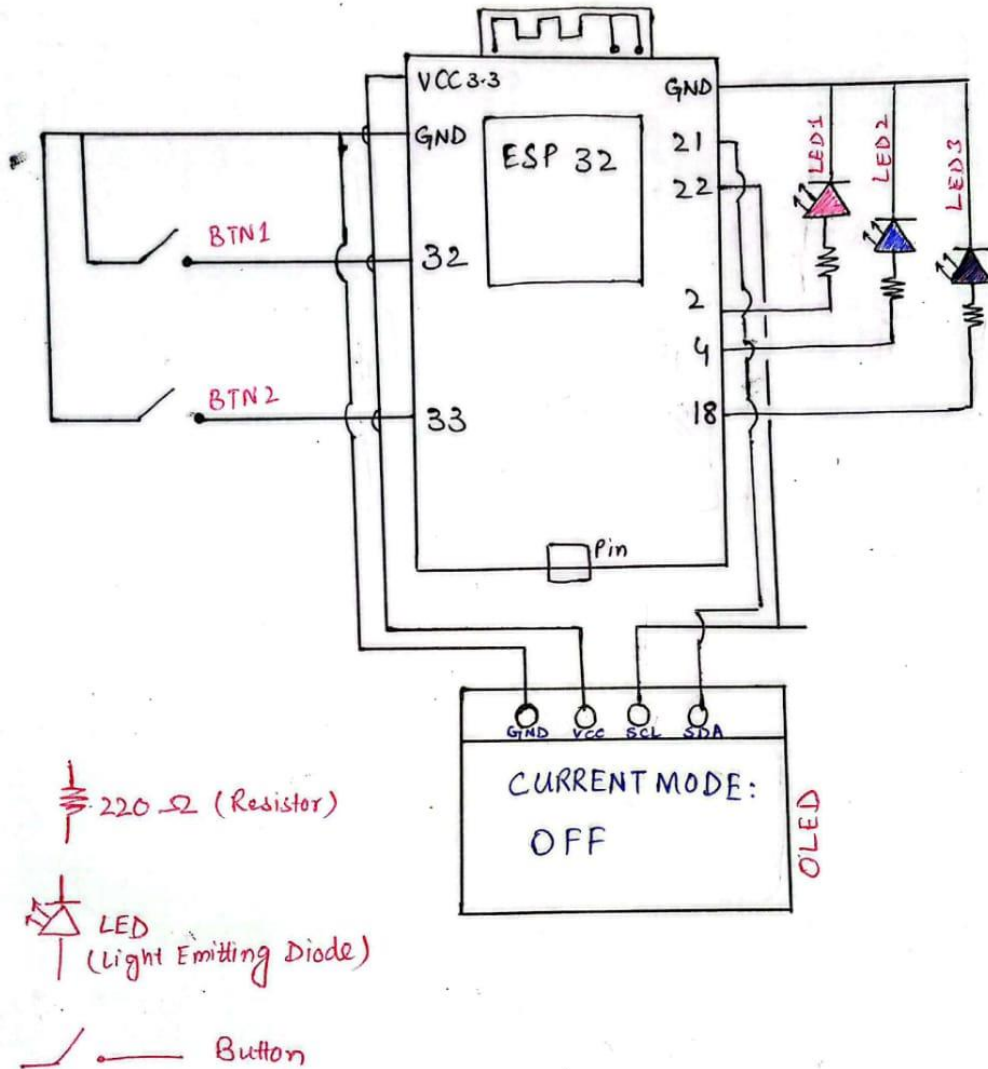 VCC 3.3
GND
GND
21
22
ESP 32
LED1
LED2
LED3
BTN1
32
2
4
BTN2
33
18
Pin
GND VCC SCL SDA
CURRENT MODE:
OFF
OLED
220 Ω (Resistor)
LED
(Light Emitting Diode)
Button